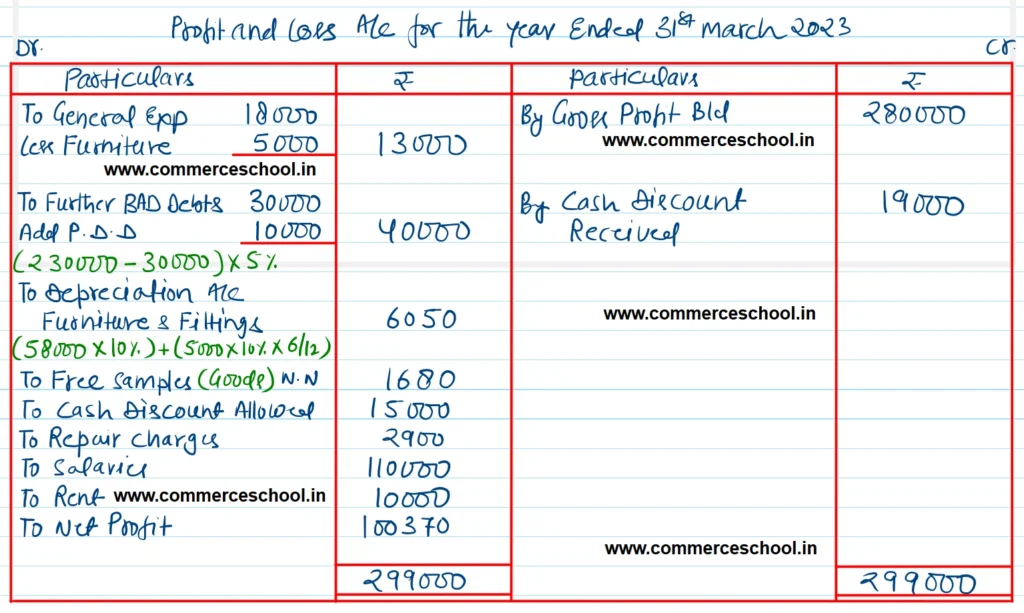 Profit and Loss A/c for the year Ended 31st March 2023
Dr. Cr.
Particulars ₹ Particulars ₹
To General Exp 18000 By Gross Profit B/d 280000
Less Furniture 5000 13000 www.commerceschool.in
www.commerceschool.in
To Further BAD Debts 30000 By Cash Discount 19000
Add P.D.D 10000 40000 Received
(230000-30000)×5%
To Depreciation A/c
Furniture & Fittings 6050 www.commerceschool.in
(58000×10%)+(5000×10%×6/12)
To Free Samples (Goods) N.N 1680
To Cash Discount Allowed 15000
To Repair Charges 2900
To Salaries 110000
To Rent www.commerceschool.in 10000
To Net Profit 100370
www.commerceschool.in
299000 299000